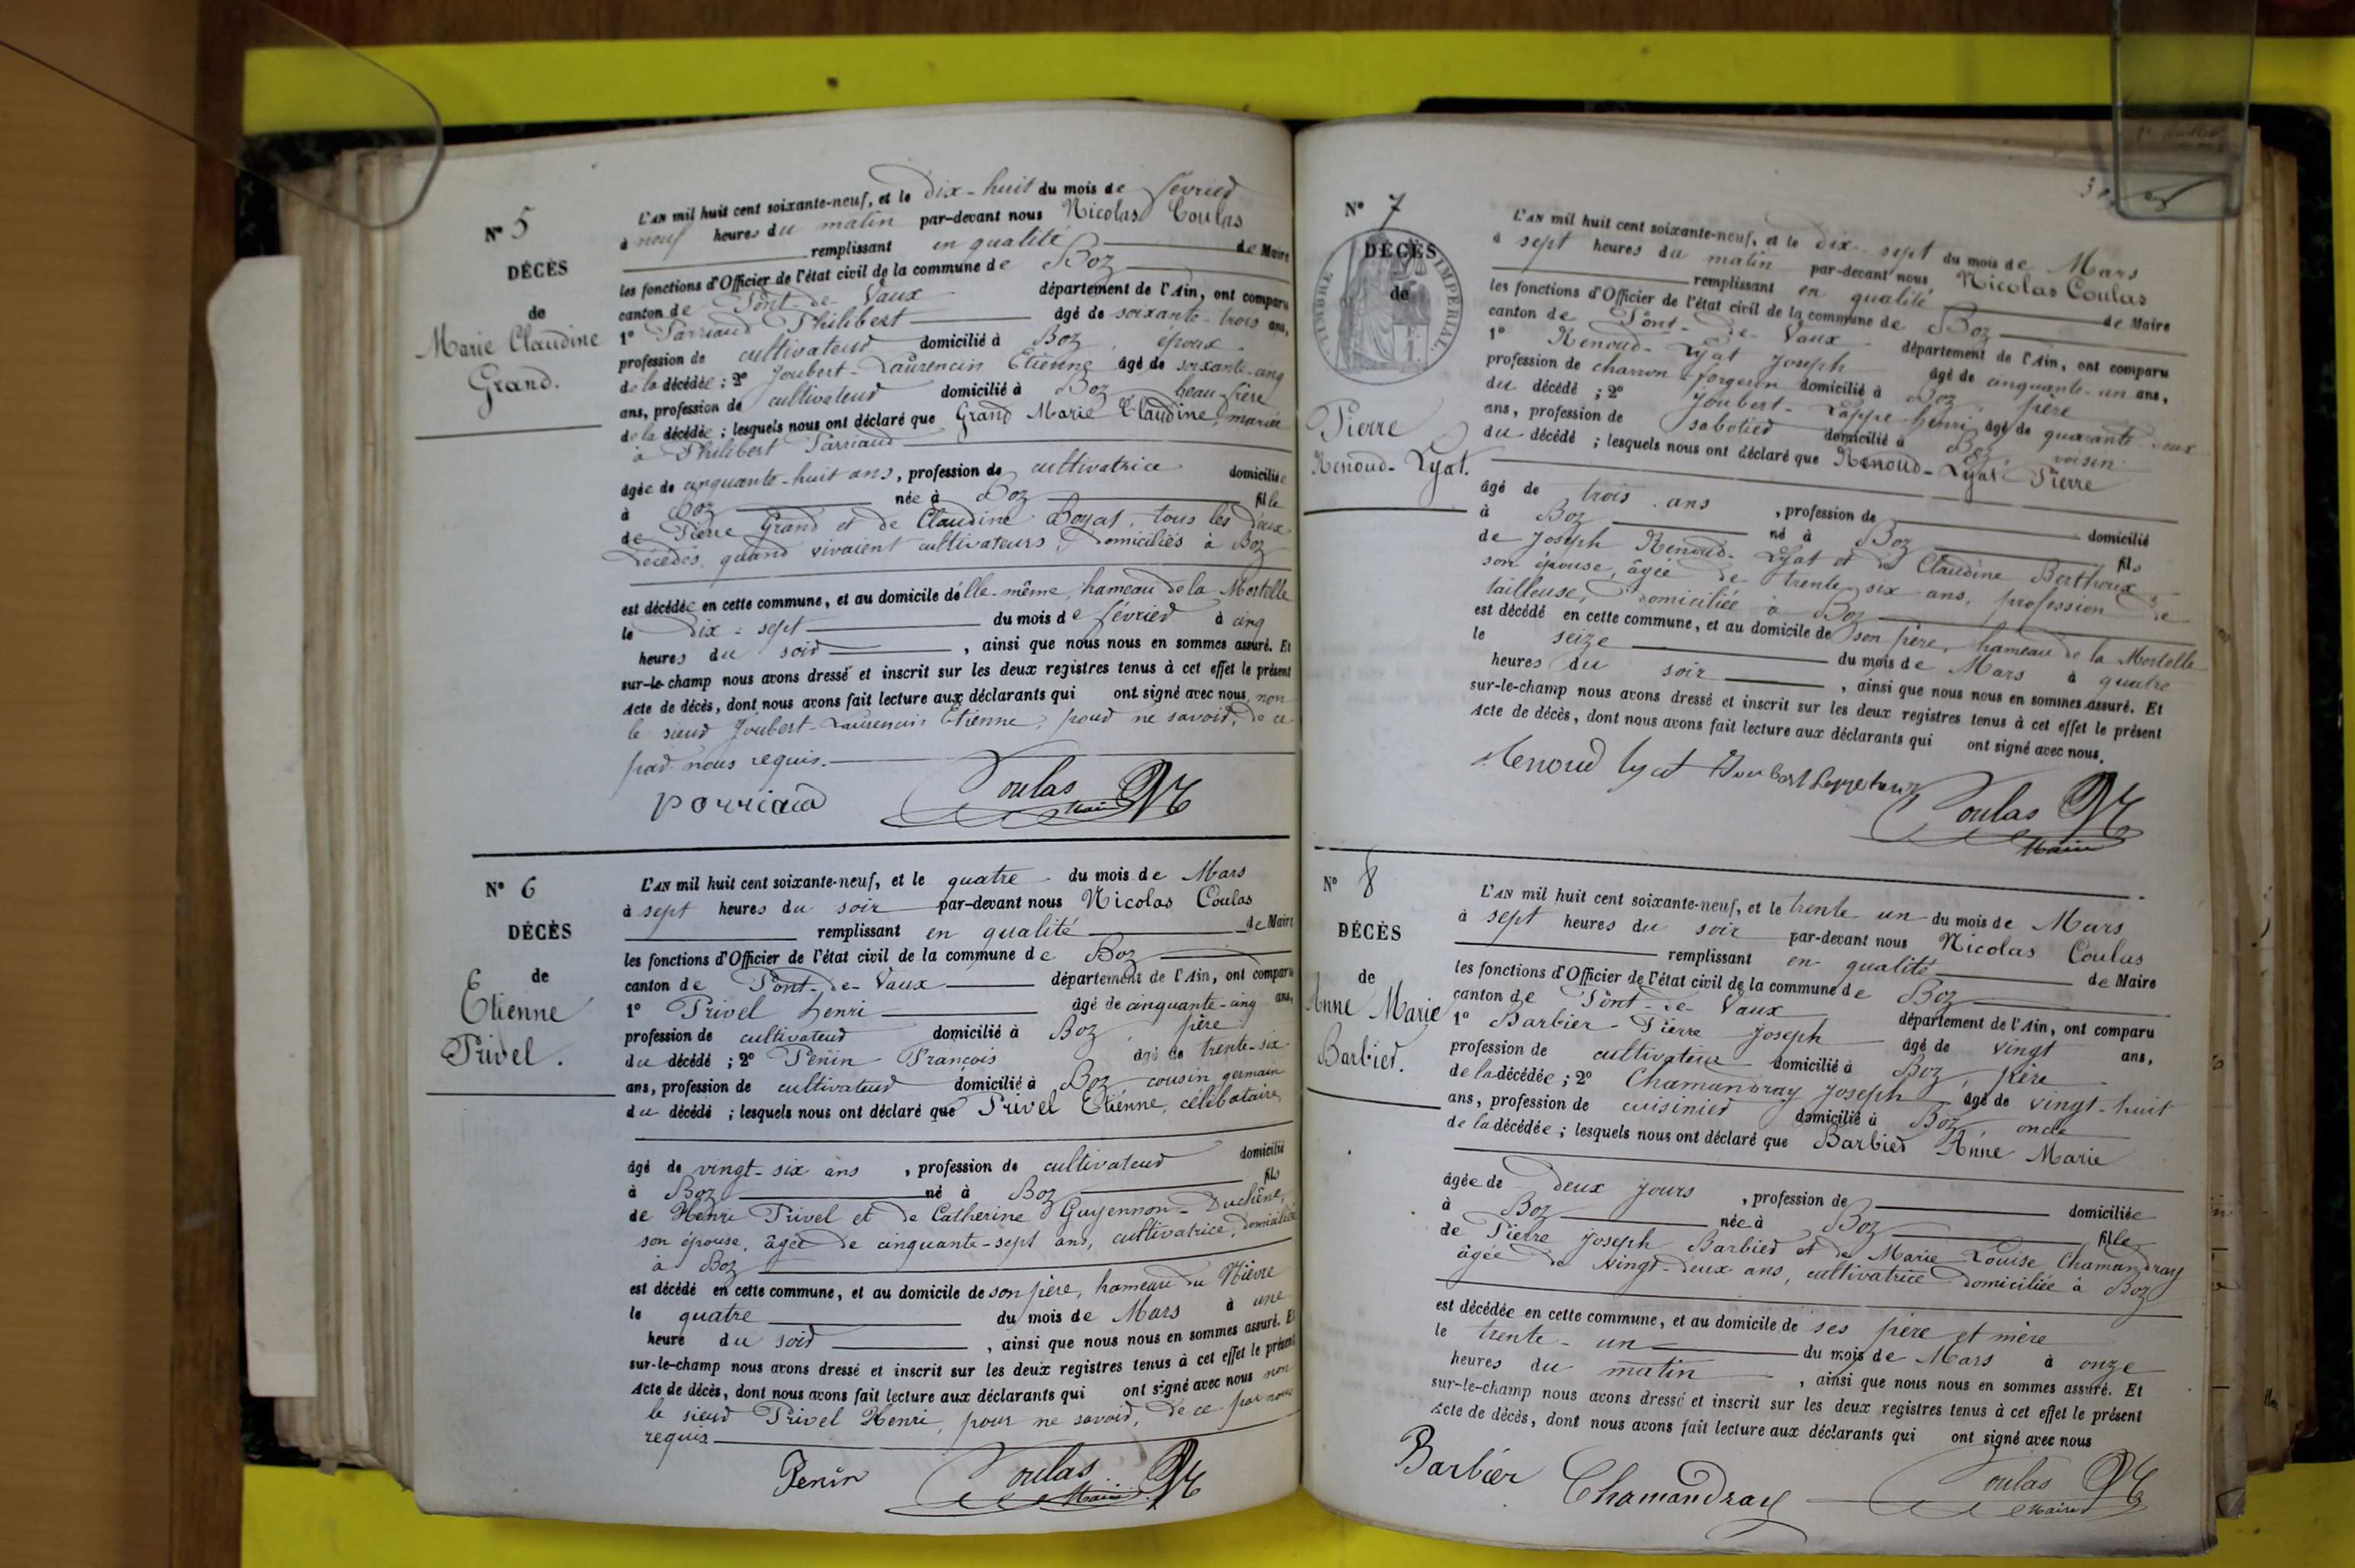 N° 5
DÉCÈS
de
Marie Claudine
Grand.
L'AN mil huit cent soixante-neuf, et le Dix-huit du mois de février
à neuf heures du matin par-devant nous Nicolas Coulas
remplissant en qualité de Maire
les fonctions d'Officier de l'état civil de la commune de Boz
canton de Pont-de-Vaux département de l'Ain, ont comparu
1° Parriaud Philibert âgé de soixante-trois ans,
profession de cultivateur domicilié à Boz, époux
de la décédée ; 2° Joubert-Laurencin Etienne âgé de soixante-cinq
ans, profession de cultivateur domicilié à Boz beau-frère
de la décédée ; lesquels nous ont déclaré que Grand Marie Claudine, mariée
à Philibert Parriaud
âgée de cinquante-huit ans, profession de cultivatrice domiciliée
à Boz née à Boz fille
de Pierre Grand et de Claudine Boyat, tous les deux
décédés, quand vivaient cultivateurs, domiciliés à Boz
est décédée en cette commune, et au domicile d'elle-même, hameau de la Mortelle
le dix-sept du mois de février à cinq
heures du soir, ainsi que nous nous en sommes assuré. Et
sur-le-champ nous avons dressé et inscrit sur les deux registres tenus à cet effet le présent
Acte de décès, dont nous avons fait lecture aux déclarants qui ont signé avec nous, non
le sieur Joubert-Laurencin Etienne, pour ne savoir, de ce
par nous requis.
parriaud Coulas Maire
N° 6
DÉCÈS
de
Etienne
Privel.
L'AN mil huit cent soixante-neuf, et le quatre du mois de Mars
à sept heures du soir par-devant nous Nicolas Coulas
remplissant en qualité de Maire
les fonctions d'Officier de l'état civil de la commune de Boz
canton de Pont-de-Vaux département de l'Ain, ont comparu
1° Privel henri âgé de cinquante-cinq ans,
profession de cultivateur domicilié à Boz, père
du décédé ; 2° Penin François âgé de trente-six
ans, profession de cultivateur domicilié à Boz, cousin germain
du décédé ; lesquels nous ont déclaré que Privel Etienne, célibataire
âgé de vingt-six ans, profession de cultivateur domicilié
à Boz né à Boz fils
de Henri Privel et de Catherine Guyennon-Duchêne,
son épouse, âgée de cinquante-sept ans, cultivatrice, domiciliée
à Boz
est décédé en cette commune, et au domicile de son père, hameau du Nièvre
le quatre du mois de Mars à une
heure du soir, ainsi que nous nous en sommes assuré. Et
sur-le-champ nous avons dressé et inscrit sur les deux registres tenus à cet effet le présent
Acte de décès, dont nous avons fait lecture aux déclarants qui ont signé avec nous non
le sieur Privel Henri, pour ne savoir, de ce par nous
requis
Penin Coulas Maire
N° 7
DÉCÈS
de
TIMBRE IMPERIAL
Pierre
Renoud-Lyat.
L'AN mil huit cent soixante-neuf, et le dix-sept du mois de Mars
à sept heures du matin par-devant nous Nicolas Coulas
remplissant en qualité de Maire
les fonctions d'Officier de l'état civil de la commune de Boz
canton de Pont-de-Vaux département de l'Ain, ont comparu
1° Renoud-Lyat Joseph âgé de cinquante-un ans,
profession de charron-forgeron domicilié à Boz père
du décédé ; 2° Joubert-Lappe henri âgé de quarante deux
ans, profession de sabotier domicilié à Boz, voisin
du décédé ; lesquels nous ont déclaré que Renoud-Lyat Pierre
âgé de trois ans, profession de domicilié
à Boz né à Boz fils
de Joseph Renoud-Lyat et de Claudine Berthoux
son épouse, âgée de trente six ans, profession de
tailleuse, domiciliée à Boz
est décédé en cette commune, et au domicile de son père, hameau de la Mortelle
le seize du mois de Mars à quatre
heures du soir, ainsi que nous nous en sommes assuré. Et
sur-le-champ nous avons dressé et inscrit sur les deux registres tenus à cet effet le présent
Acte de décès, dont nous avons fait lecture aux déclarants qui ont signé avec nous.
Renoud lyat Joubert Coulas
Maire
N° 8
DÉCÈS
de
Anne Marie
Barbier.
L'AN mil huit cent soixante-neuf, et le trente un du mois de Mars
à sept heures du soir par-devant nous Nicolas Coulas
remplissant en qualité de Maire
les fonctions d'Officier de l'état civil de la commune de Boz
canton de Pont-de-Vaux département de l'Ain, ont comparu
1° Barbier Pierre Joseph âgé de vingt ans,
profession de cultivateur domicilié à Boz, père
de la décédée ; 2° Chamandray Joseph âgé de vingt-huit
ans, profession de cuisinier domicilié à Boz, oncle
de la décédée ; lesquels nous ont déclaré que Barbier Anne Marie
âgée de deux jours, profession de domiciliée
à Boz née à Boz fille
de Pierre Joseph Barbier et de Marie Louise Chamandray
âgée de vingt-deux ans, cultivatrice domiciliée à Boz
est décédée en cette commune, et au domicile de ses père et mère
le trente-un du mois de Mars à onze
heures du matin, ainsi que nous nous en sommes assuré. Et
sur-le-champ nous avons dressé et inscrit sur les deux registres tenus à cet effet le présent
Acte de décès, dont nous avons fait lecture aux déclarants qui ont signé avec nous
Barbier Chamandray Coulas
Maire